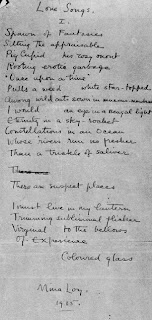 Love Songs.
I.
Spawn of Fantasies
Silting the appraisable
Pig Cupid his rosy snout
Rooting erotic garbage
"Once upon a time"
Pulls a weed white star-topped
Among wild oats sewn in mucous membrane
I would an eye in a bengal light
Eternity in a sky-rocket
Constellations in an ocean
Whose rivers run no fresher
Than a trickle of saliva
These
There are suspect places
I must live in my lantern
Trimming subliminal flicker
Virginal to the bellows
Of Experience
Coloured glass
Mina Loy.
1915.